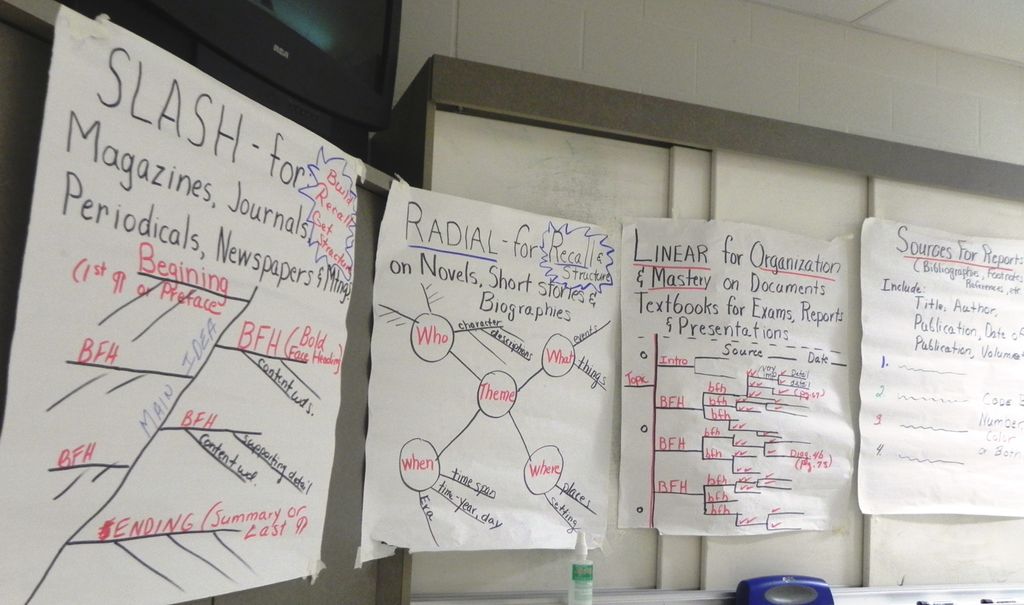 RCA
SLASH - for
Magazines, Journals,
Periodicals, Newspapers & Mngs
Build
Recall &
Get
Structure
Begining
(1st ¶ or Preface)
BFH (Bold
Face Heading)
content wds.
BFH
MAIN IDEA
BFH
supporting detail
content wd.
BFH
ENDING (Summary or
Last ¶
RADIAL - for Recall &
Structure
on Novels, Short stories &
Biographies
Who
character
descriptions
What
events
things
Theme
When
time span
time-year, day
Era
Where
places
setting
LINEAR for Organization
& Mastery on Documents
Textbooks for Exams, Reports
& Presentations
Source Date
Intro
Topic
BFH
bfh
bfh
bfh
detail
detail
BFH
bfh
bfh
bfh
BFH
bfh
bfh
bfh
Sources For Reports
(Bibliographie, Footnotes
References, etc
Include:
Title, Author,
Publication, Date of
Publication, Volume
1.
2
3
4.
Code
Number
Color